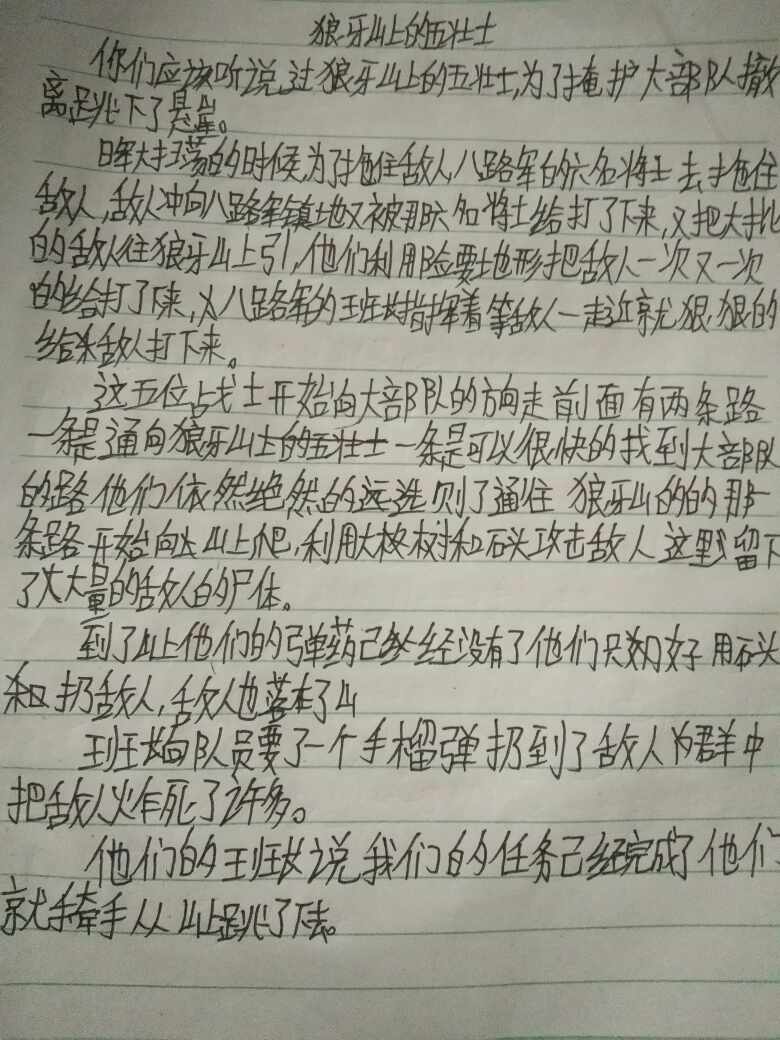 狼牙山上的五壮士
你们应该听说过狼牙山上的五壮士,为了掩护大部队撤
离跳下了悬崖。
大扫荡的时候,为了拖住敌人,八路军的六名将士去拖住
敌人,敌人冲向八路军镇地又被那六名将士给打了下来,又把大批
的敌人往狼牙山上引,他们利用险要地形把敌人一次又一次
的给打了下来,八路军的班长指挥着等敌人一走近就狠狠的
给敌人打下来。
这五位战士开始向大部队的方向走前面有两条路
一条是通向狼牙山上的五壮士一条是可以很快的找到大部队
的路他们依然绝然的选则了通往狼牙山的的那一
条路开始向山上爬,利用大树和石头攻击敌人这里留下
了大量的敌人的尸体。
到了山上他们的弹药已经没有了他们只好用石头
扔敌人,敌人也落下了山
班长向队员要了一个手榴弹扔到了敌人的群中
把敌人炸死了许多。
他们的班长说我们的任务已经完成了他们
就手牵手从山上跳了下去。